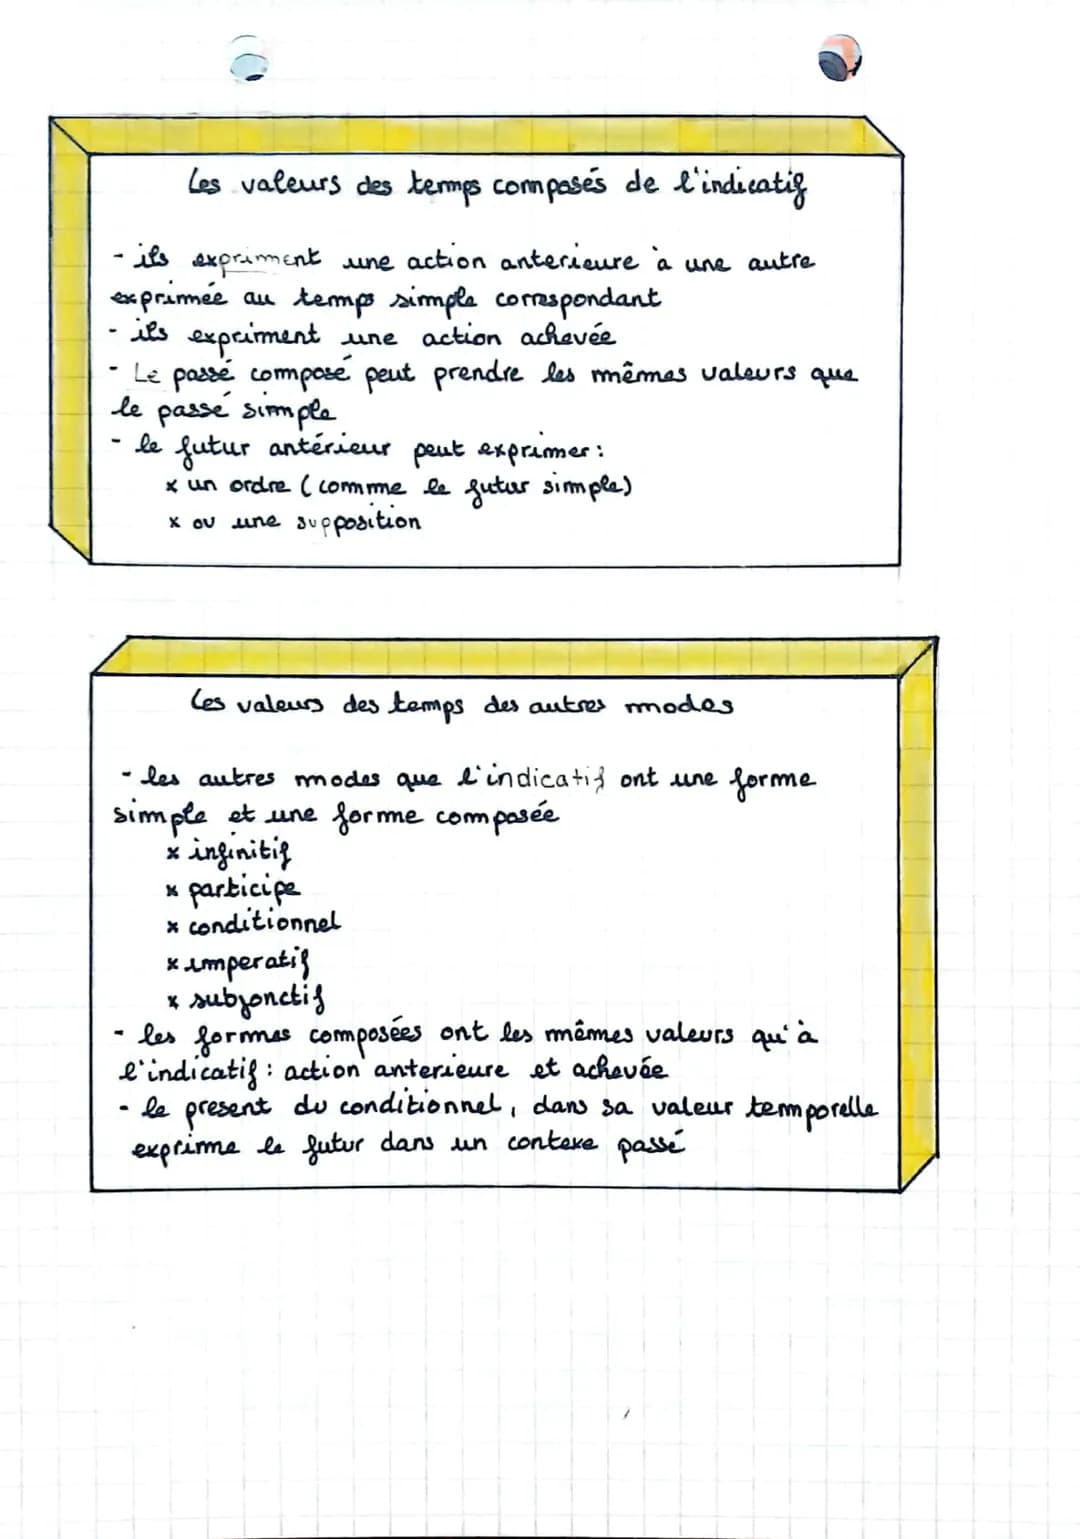 Les valeurs des temps composés de l'indicatif
- ils expriment une action anterieure à une autre
exprimée au temps simple correspondant
- ils expriment une action achevée
- Le passé composé peut prendre les mêmes valeurs que
le passé simple
- le futur antérieur peut exprimer :
x un ordre (comme le futur simple)
x ou une supposition
Les valeurs des temps des autres modes
- les autres modes que l'indicatif ont une forme
simple et une forme composée
x infinitif
x participe
x conditionnel
x imperatif
x subjonctif
- les formes composées ont les mêmes valeurs qu'à
l'indicatif : action anterieure et achevée
- le present du conditionnel, dans sa valeur temporelle
exprime le futur dans un contexe passé